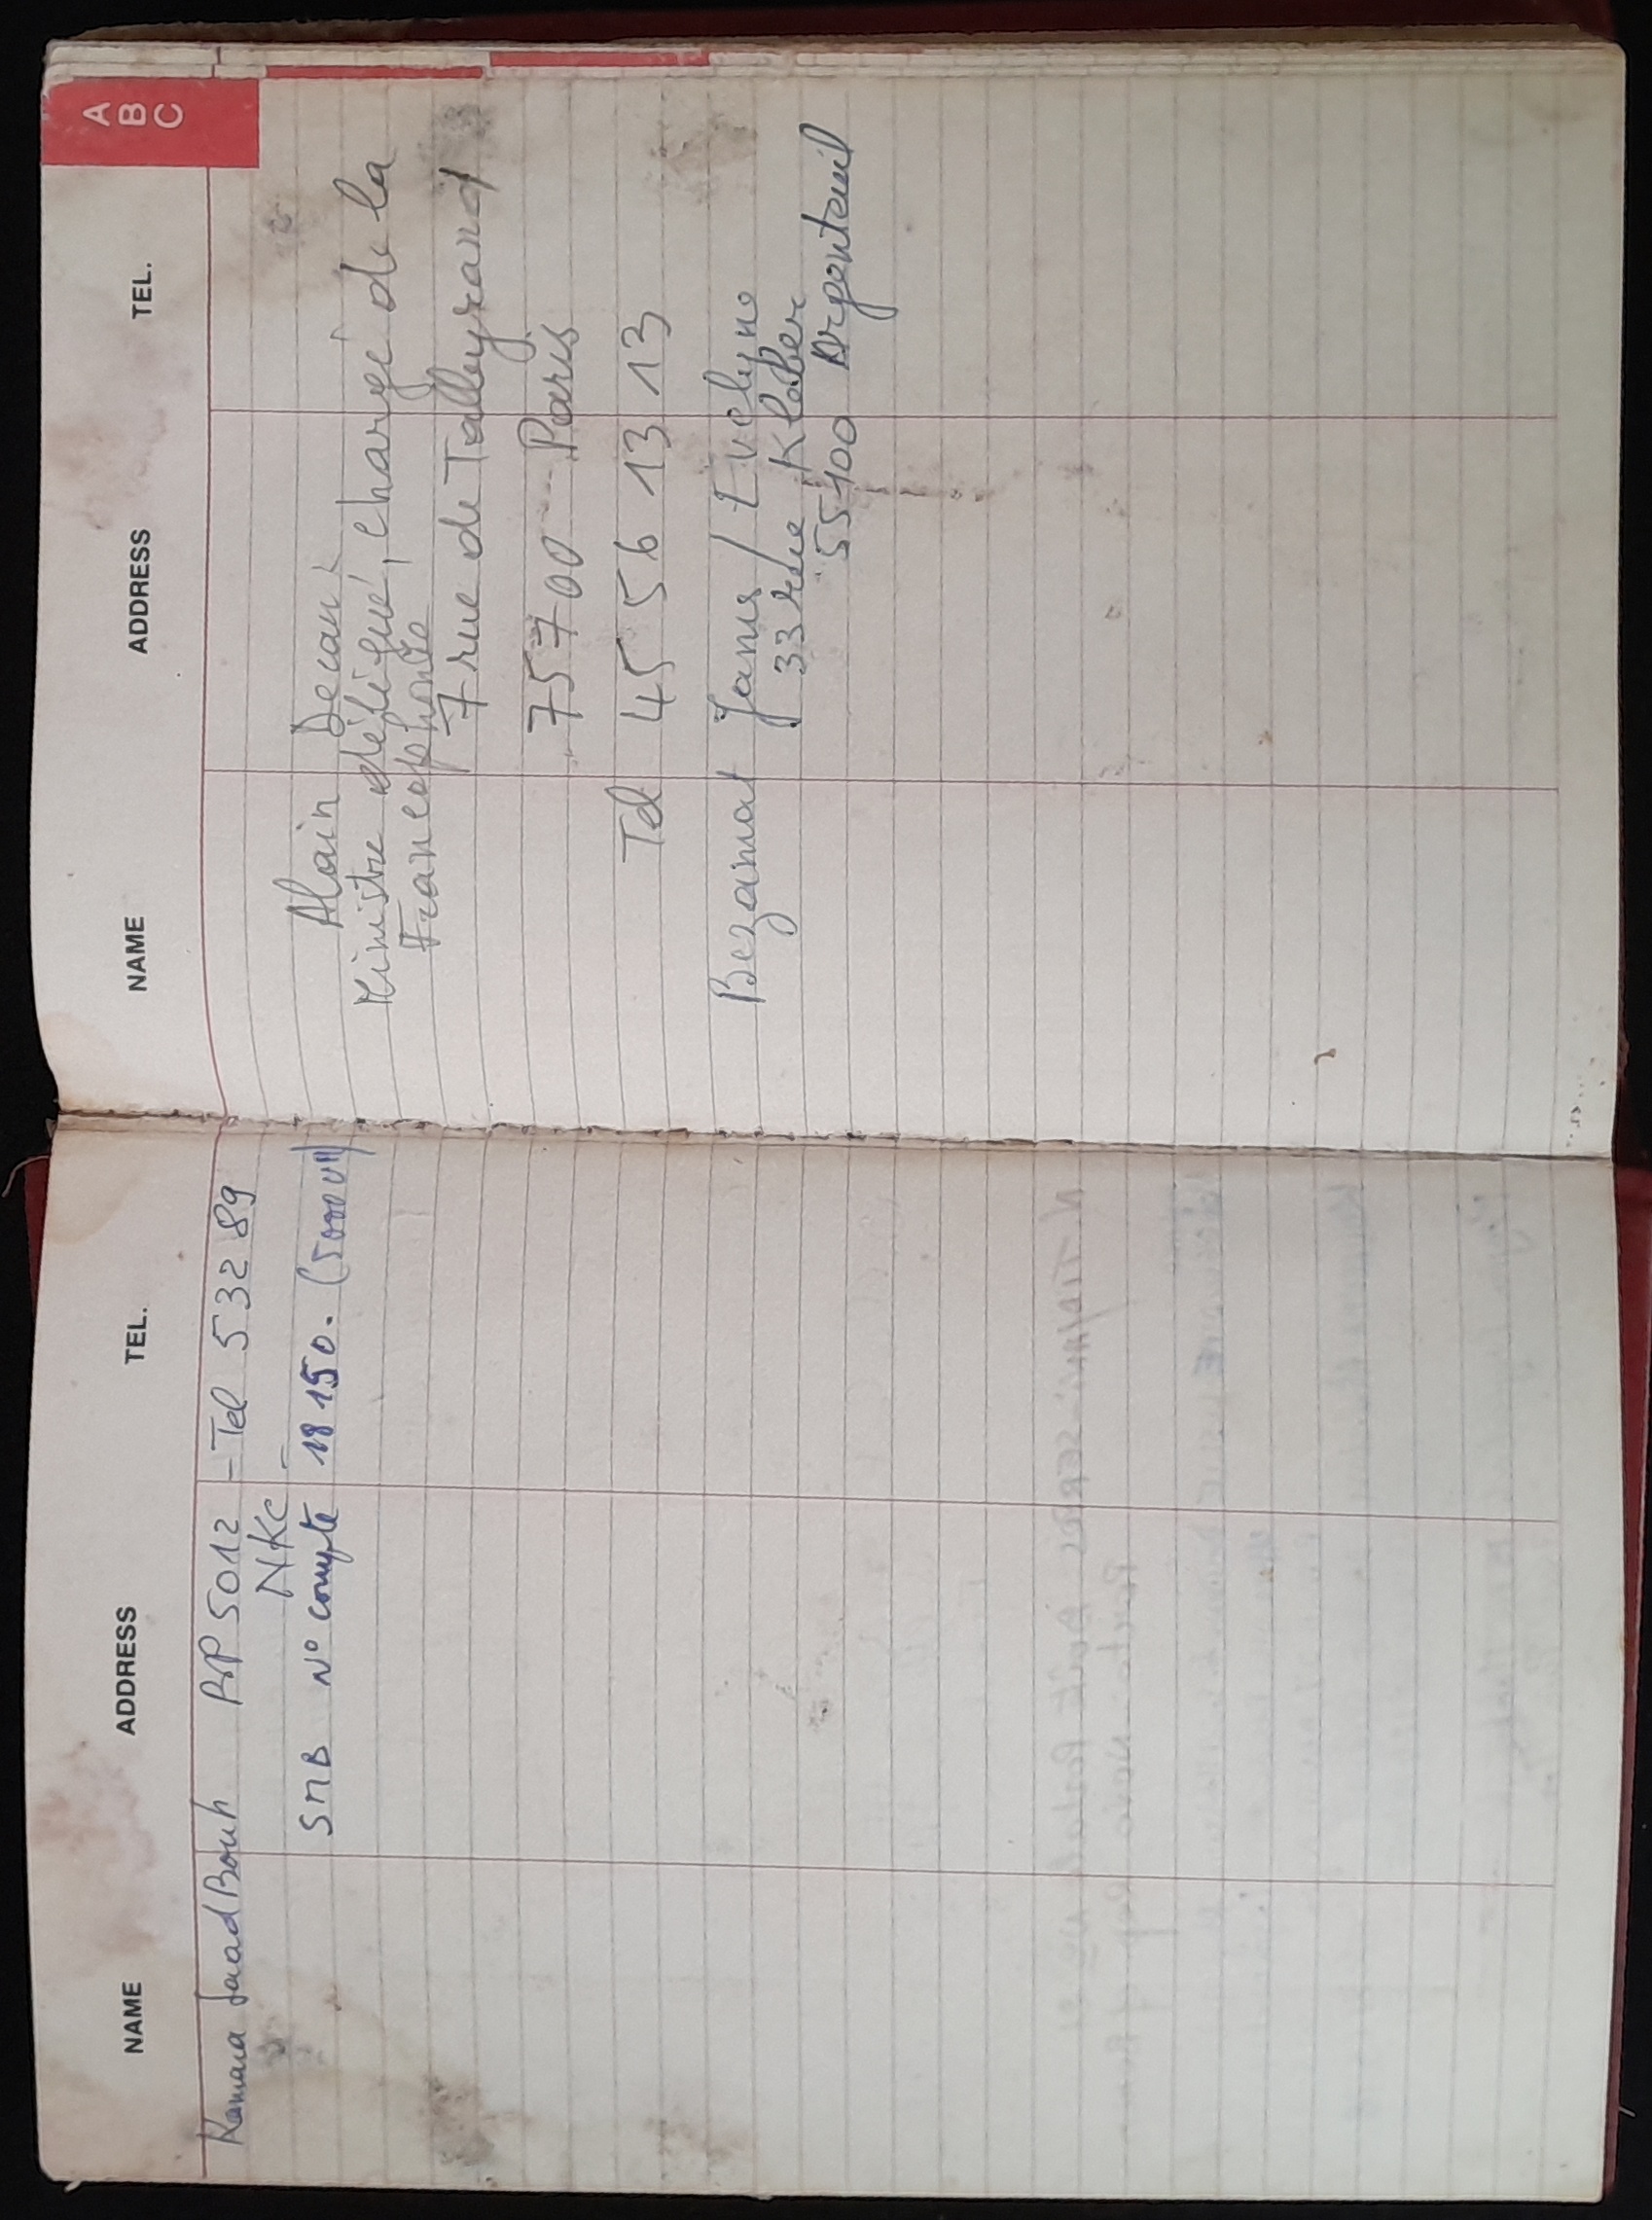 NAME ADDRESS TEL.
Kamara Saad Bouh BP 5012 - Tel 532 89
NKC -
SMB N° compte 18 150. (5000 UM)
A
B
C
NAME ADDRESS TEL.
Alain Decaux
Ministre délégué, chargé de la
Francophonie
7 rue de Talleyrand
75700 Paris
Tel 45 56 13 13
Bezamat Janus / Evelyne
33 rue Kleber
55100 Argenteuil